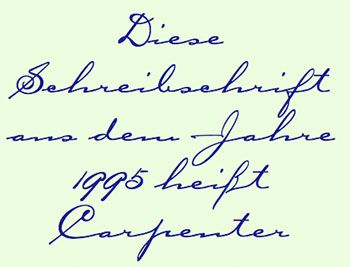 Diese
Schreibschrift
aus dem Jahre
1995 heißt
Carpenter